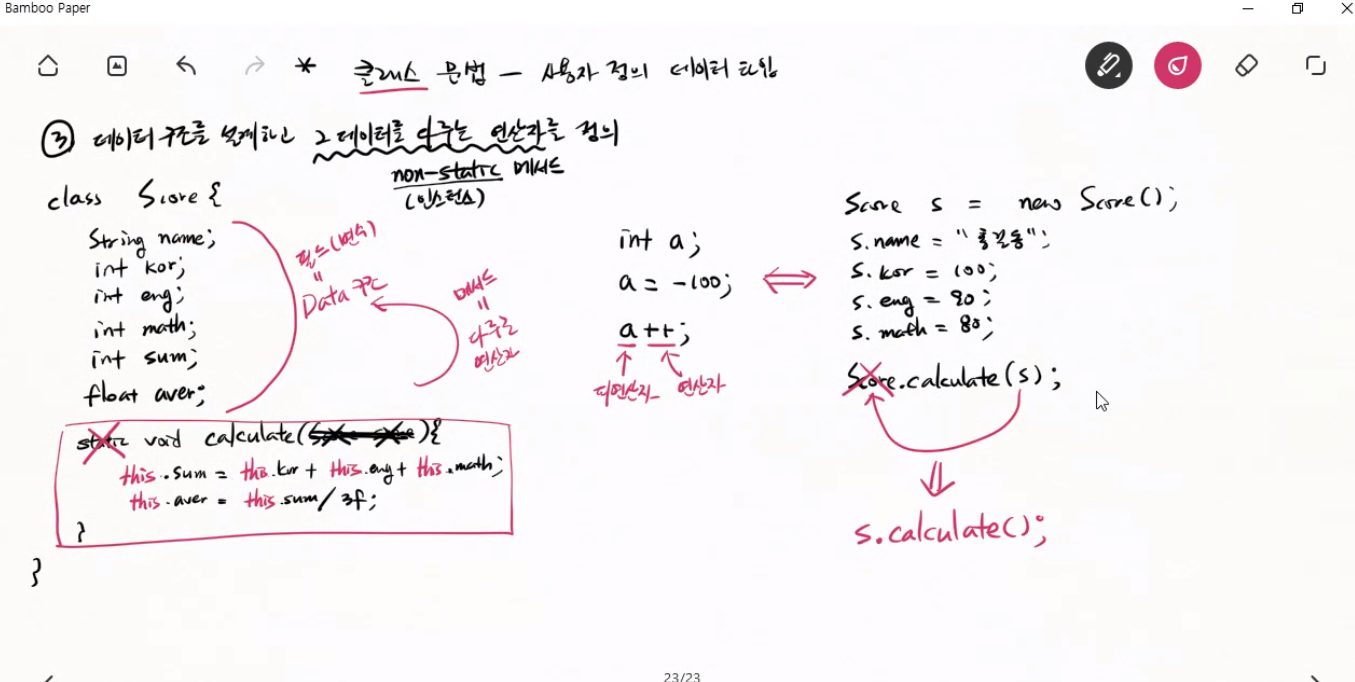 Bamboo Paper
* 클래스 문법 – 사용자 정의 데이터 타입
③ 데이터 구조를 설계하고 그 데이터를 다루는 연산자를 정의
non-static 메서드
(인스턴스)
class Score {
String name;
int kor;
int eng;
int math;
int sum;
float aver;
static void calculate( ){
this.sum = this.kor + this.eng + this.math;
this.aver = this.sum / 3f;
}
}
필드(변수)
=
Data 구조
메서드
=
다루는
연산자
int a;
a = -100;
a++;
피연산자
연산자
Score s = new Score();
s.name = "홍길동";
s.kor = 100;
s.eng = 90;
s.math = 80;
Score.calculate(s);
s.calculate();
23/23